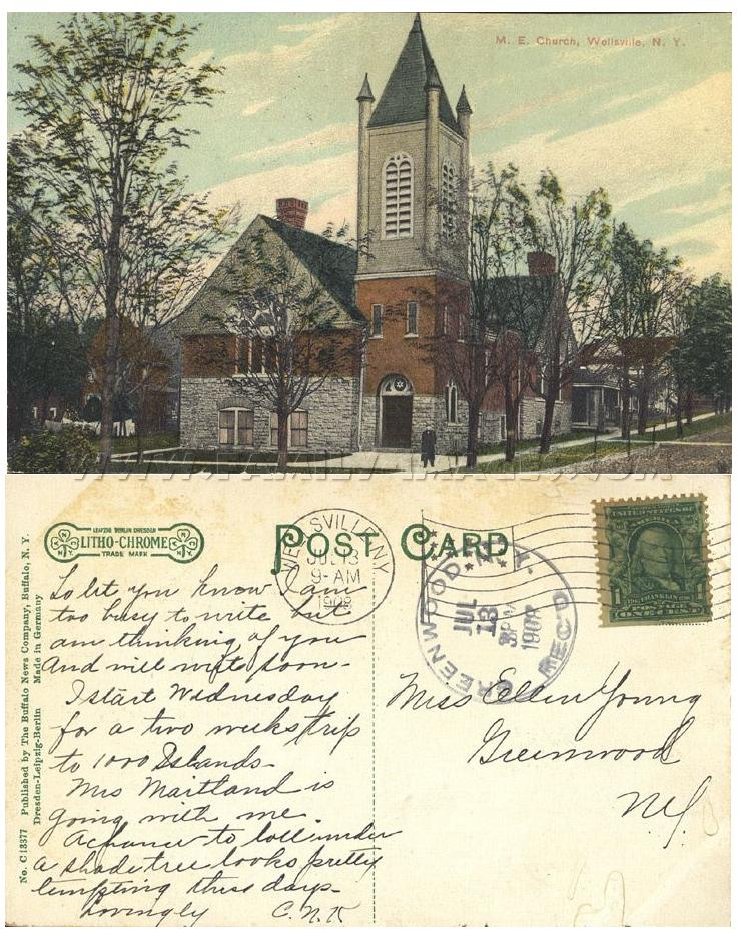 M. E. Church, Wellsville, N. Y.
WWW.FAMILY-IMAGES.COM
POST CARD
LEIPZIG BERLIN DRESDEN
LITHO-CHROME
TRADE MARK
WELLSVILLE N.Y.
JUL 13
9-AM
GREENWOOD, N.Y.
JUL
13
3 PM
1908
REC'D
UNITED STATES OF AMERICA
FRANKLIN
POSTAGE
ONE CENT
No. C 13377 Published by The Buffalo News Company, Buffalo, N. Y.
Dresden-Leipzig-Berlin Made in Germany
To let you know I am
too busy to write but
am thinking of you
And will write soon-
I start Wednesday
for a two weeks trip
to 1000 Islands-
Mrs Maitland is
going with me.
A chance to loll under
a shade tree looks pretty
tempting these days-
Lovingly C.N.K
Miss Ellen Young
Greenwood
N.Y.